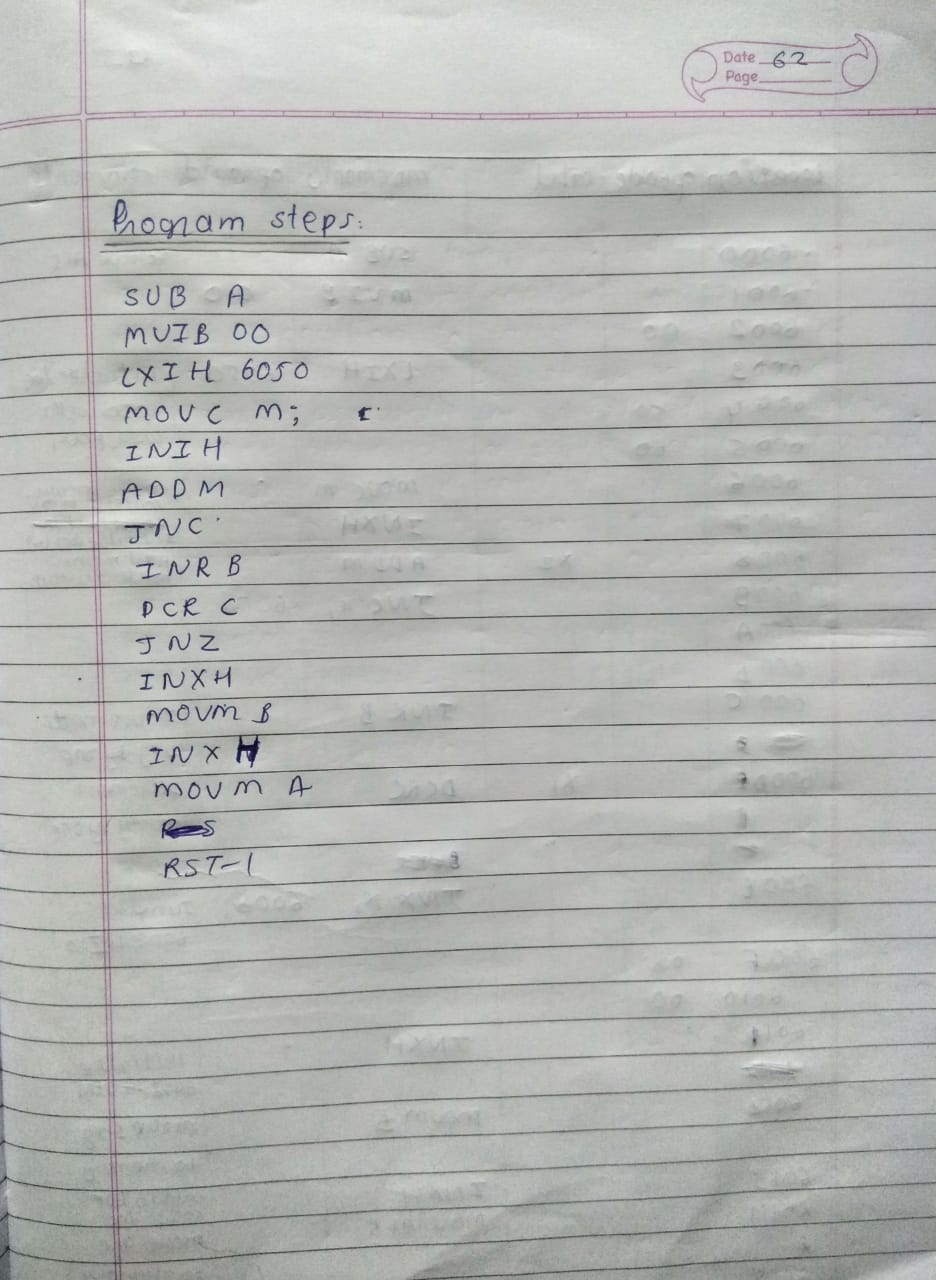 Date 62
Page
Program steps:
SUB A
MVIB 00
LXIH 6050
MOVC M;
INIH
ADDM
JNC
INRB
DCR C
JNZ
INXH
MOVM B
INX H
MOVM A
RST-1